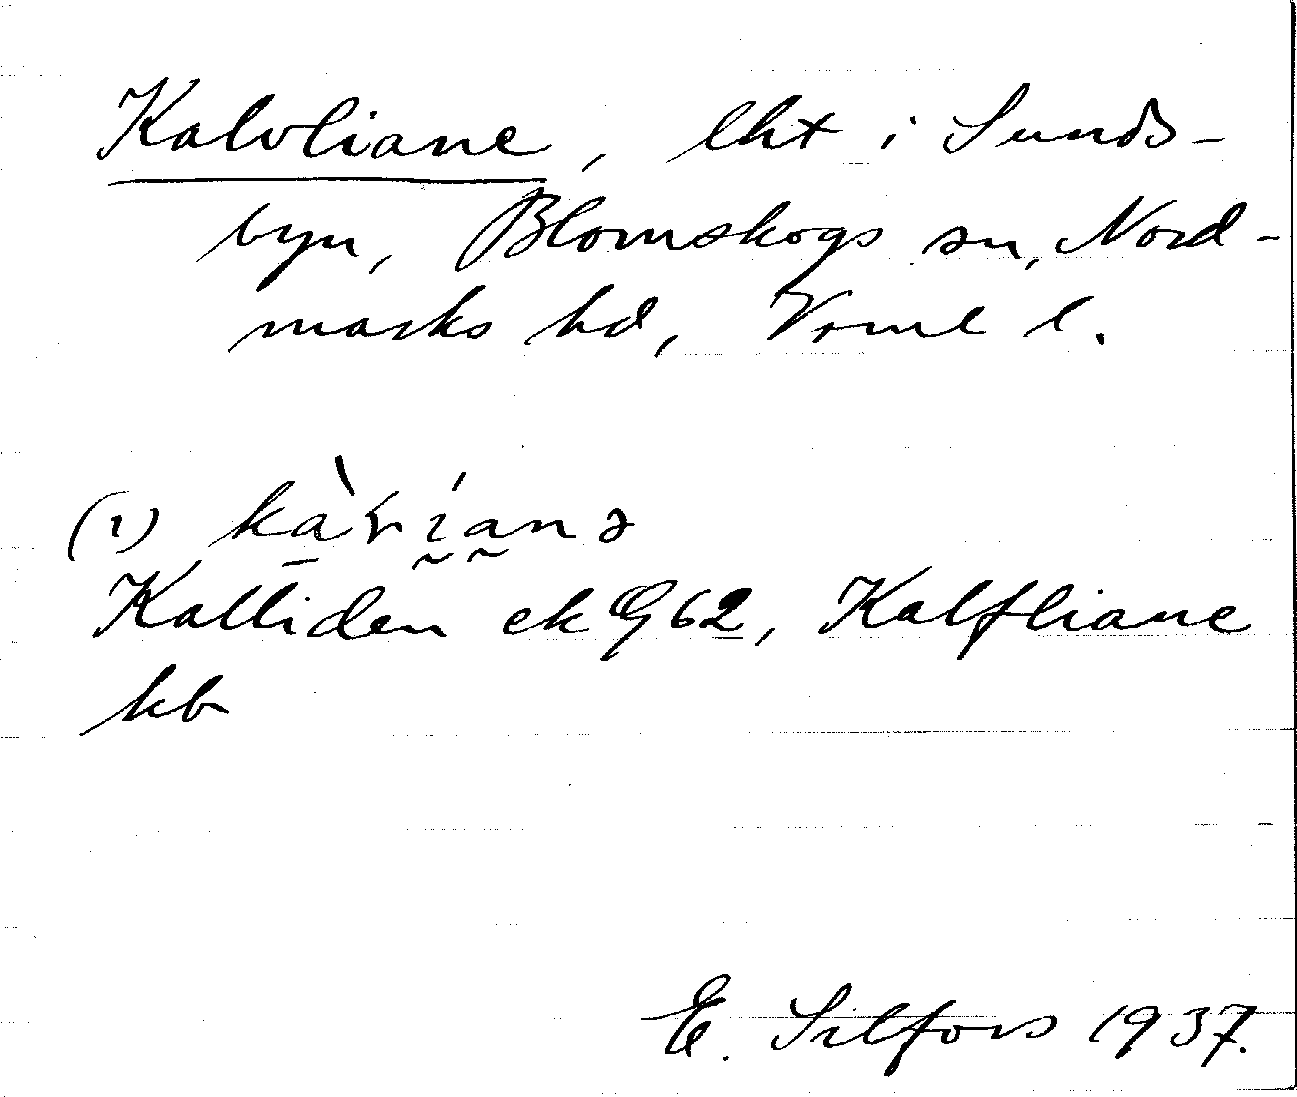 Kalvliane, lht i Sunds-
byn, Blomskogs sn, Nord-
marks hd, Vrml l.
(1)
Kalliden ek G 62, Kalfliane
kb
E. Silfors 1937.